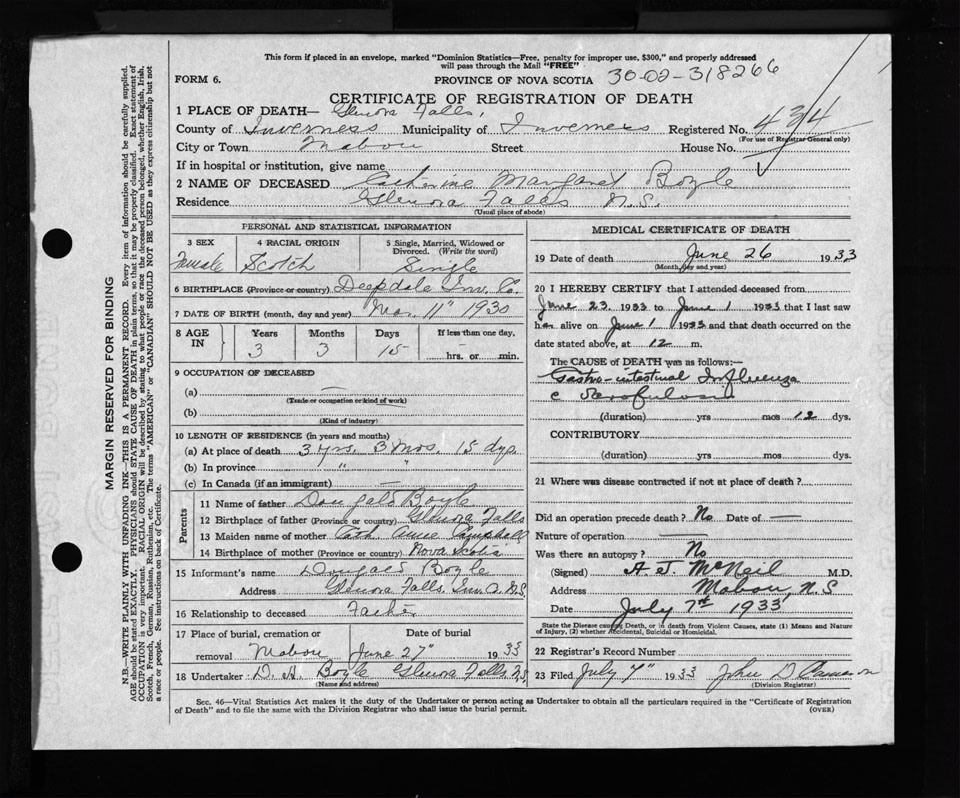 This form if placed in an envelope, marked "Dominion Statistics—Free, penalty for improper use, $300," and properly addressed
will pass through the Mail "FREE"
FORM 6.
PROVINCE OF NOVA SCOTIA 30-02-318266
CERTIFICATE OF REGISTRATION OF DEATH
1 PLACE OF DEATH— Glenora Falls,
County of Inverness Municipality of Inverness Registered No. 434
(For use of Registrar General only)
City or Town Mabou Street House No.
If in hospital or institution, give name
2 NAME OF DECEASED Catherine Margaret Boyle
Residence Glenora Falls N.S.
(Usual place of abode)
PERSONAL AND STATISTICAL INFORMATION
3 SEX 4 RACIAL ORIGIN 5 Single, Married, Widowed or
Divorced. (Write the word)
Female Scotch Single
6 BIRTHPLACE (Province or country) Deepdale Inv. Co.
7 DATE OF BIRTH (month, day and year) Mar. 11" 1930
8 AGE IN Years Months Days If less than one day,
3 3 15 — hrs. or min.
9 OCCUPATION OF DECEASED
(a) —
(Trade or occupation or kind of work)
(b)
(Kind of industry)
10 LENGTH OF RESIDENCE (in years and months)
(a) At place of death 3 yrs. 3 Mos. 15 dys.
(b) In province " "
(c) In Canada (if an immigrant) —
Parents
11 Name of father Dougald Boyle
12 Birthplace of father (Province or country) Glenora Falls
13 Maiden name of mother Cath. Anne Campbell
14 Birthplace of mother (Province or country) Nova Scotia
15 Informant's name Dougald Boyle
Address Glenora Falls. Inv. Co. N.S.
16 Relationship to deceased Father
17 Place of burial, cremation or Date of burial
removal Mabou June 27" 1933
18 Undertaker D. H. Boyle Glenora Falls. N.S.
(Name and address)
MEDICAL CERTIFICATE OF DEATH
19 Date of death June 26 1933
(Month, day and year)
20 I HEREBY CERTIFY that I attended deceased from
June 23 1933 to June 1 1933 that I last saw
her alive on June 1 1933 and that death occurred on the
date stated above, at 12 m.
The CAUSE OF DEATH was as follows:—
Gastro-intestinal Influenza
c Scrofulosis
(duration) yrs mos 12 dys.
CONTRIBUTORY
(duration) yrs mos dys.
21 Where was disease contracted if not at place of death?
Did an operation precede death? No Date of —
Nature of operation —
Was there an autopsy? No
(Signed) A. J. McNeil M.D.
Address Mabou, N.S
Date July 7th 1933
State the Disease causing Death, or in death from Violent Causes, state (1) Means and
Nature of Injury, (2) whether Accidental, Suicidal or Homicidal.
22 Registrar's Record Number
23 Filed July 7" 1933 John D Cameron
(Division Registrar)
Sec. 46—Vital Statistics Act makes it the duty of the Undertaker or person acting as Undertaker to obtain all the particulars required in the "Certificate of Registration
of Death" and to file the same with the Division Registrar who shall issue the burial permit. (OVER)
MARGIN RESERVED FOR BINDING
N.B.—WRITE PLAINLY WITH UNFADING INK—THIS IS A PERMANENT RECORD. Every item of information should be carefully supplied.
AGE should be stated EXACTLY. PHYSICIANS should STATE CAUSE OF DEATH in plain terms, so that it may be properly classified. Exact statement of
OCCUPATION is very important. RACIAL ORIGIN will be described by stating to what people or race the deceased person belonged, whether English, Irish,
Scotch, French, German, Russian, Ruthenian, etc. The terms "AMERICAN" or "CANADIAN" SHOULD NOT BE USED as they express citizenship but not
a race or people. See instructions on back of Certificate.